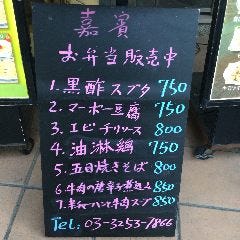 嘉賓
お弁当販売中
1. 黒酢スブタ 750
2. マーボー豆腐 750
3. エビチリソース 800
4. 油淋鶏 750
5. 五目焼きそば 800
6. 牛肉の唐辛子煮込み 850
7. 半チャーハンと牛肉スープ 850
Tel: 03-3253-7866